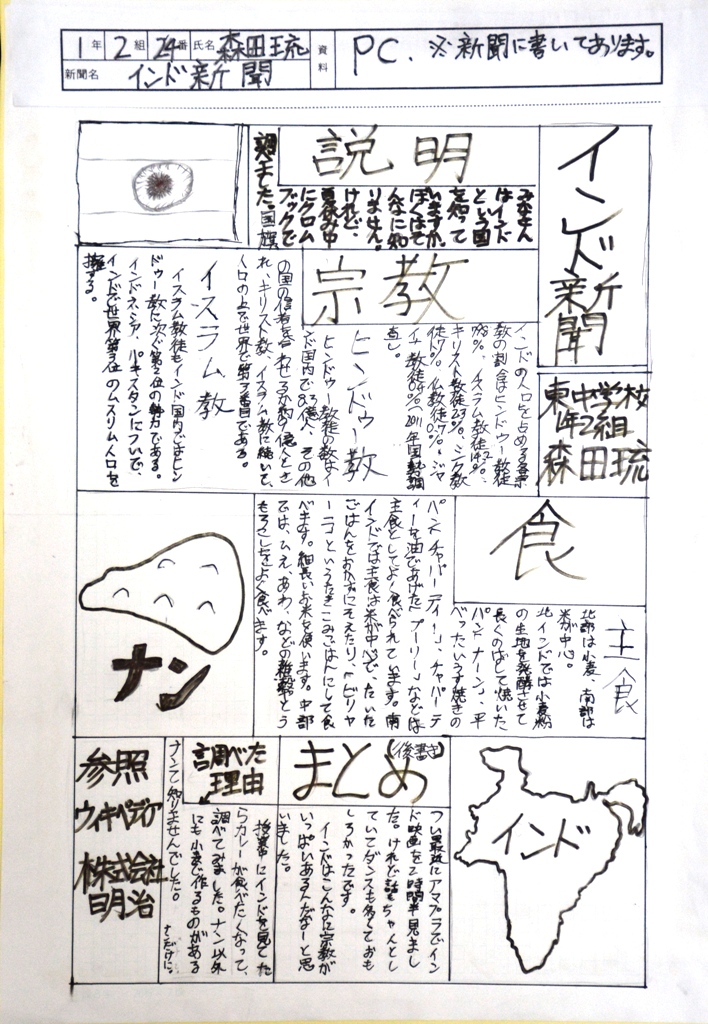 1年 2組 24番 氏名 森田琉
新聞名 インド新聞
資料 PC. ※新聞に書いてあります。
インド新聞
東中学校
1年2組
森田琉
説明
みなさん
はインド
という国
を知って
いますか。
ぼくはそ
んなに知
りません。
けれど、
夏休み中
にクロム
ブックで
調べました。
国旗
宗教
インドの人口を占める各宗
教の割合はヒンドゥー教徒
79.8%、イスラム教徒14.2%、
キリスト教徒2.3%、シク教
徒1.7%、仏教徒0.7%、ジャ
イナ教徒0.4%(2011年国勢調
査)。
ヒンドゥー教
ヒンドゥー教徒の数はイ
ンド国内で8.3億人、その他
の国の信者を合わせると約9億人とさ
れ、キリスト教、イスラム教に続いて、
人口の上で世界で第3番目である。
イスラム教
イスラム教徒もインド国内ではヒン
ドゥー教に次ぐ第2位の勢力である。
インドネシア、パキスタンについで、
インドで世界第3位のムスリム人口を
擁する。
食
主食
北部は小麦、南部は
米が中心。
北インドでは小麦粉
の生地を発酵させて
長くのばして焼いた
パン「ナーン」、平
べったいうす焼きの
パン「チャパーティー」、チャパーテ
ィーを油であげた「プーリー」などは
主食としてよく食べられています。南
インドでは主食は米が中心で、たいた
ごはんをおかずにそえたり、「ビリヤ
ーニ」というたきこみごはんにして食
べます。細長いお米を使います。中部
では、ひえ、あわ、などの雑穀やとう
もろこしをよく食べます。
ナン
インド
まとめ
(後書き)
つい最近にアマプラでイン
ド映画を2時間半見まし
た。けれど話もちゃんとし
ていてダンスも多くておも
しろかったです。
インドはこんなに宗教が
いっぱいあるんだなーと思
いました。
調べた
理由
授業中にインドを見てた
らカレーが食べたくなって、
調べてみました。ナン以外
にも小麦で作るものがある
なんて知りませんでした。
参照
ウィキペディア
株式会社
明治